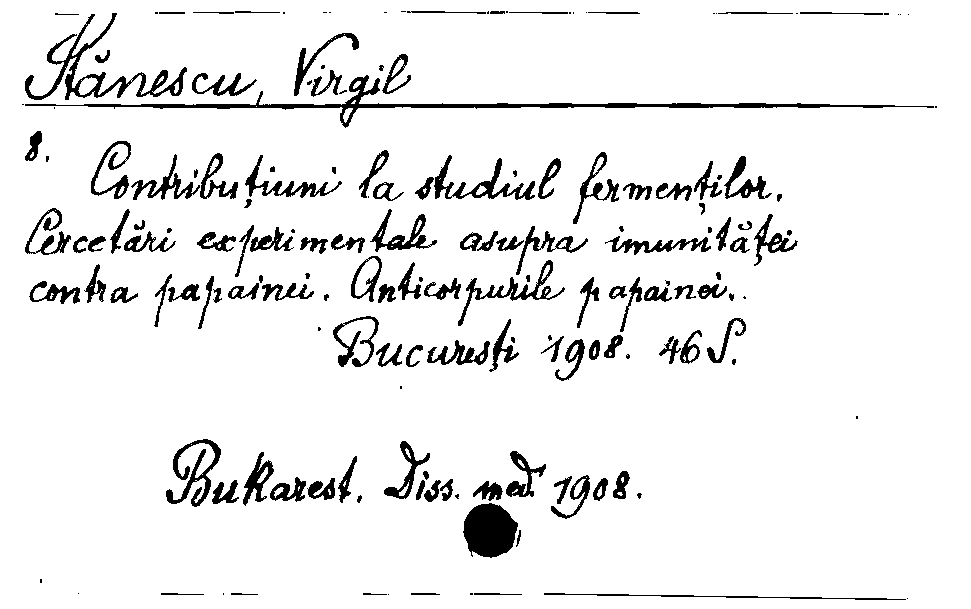 Stănescu, Virgil
8.
Contribuțiuni la studiul fermenților.
Cercetări experimentale asupra imunităței
contra papainei. Anticorpurile papainei.
București 1908. 46 S.
Bukarest. Diss. med. 1908.